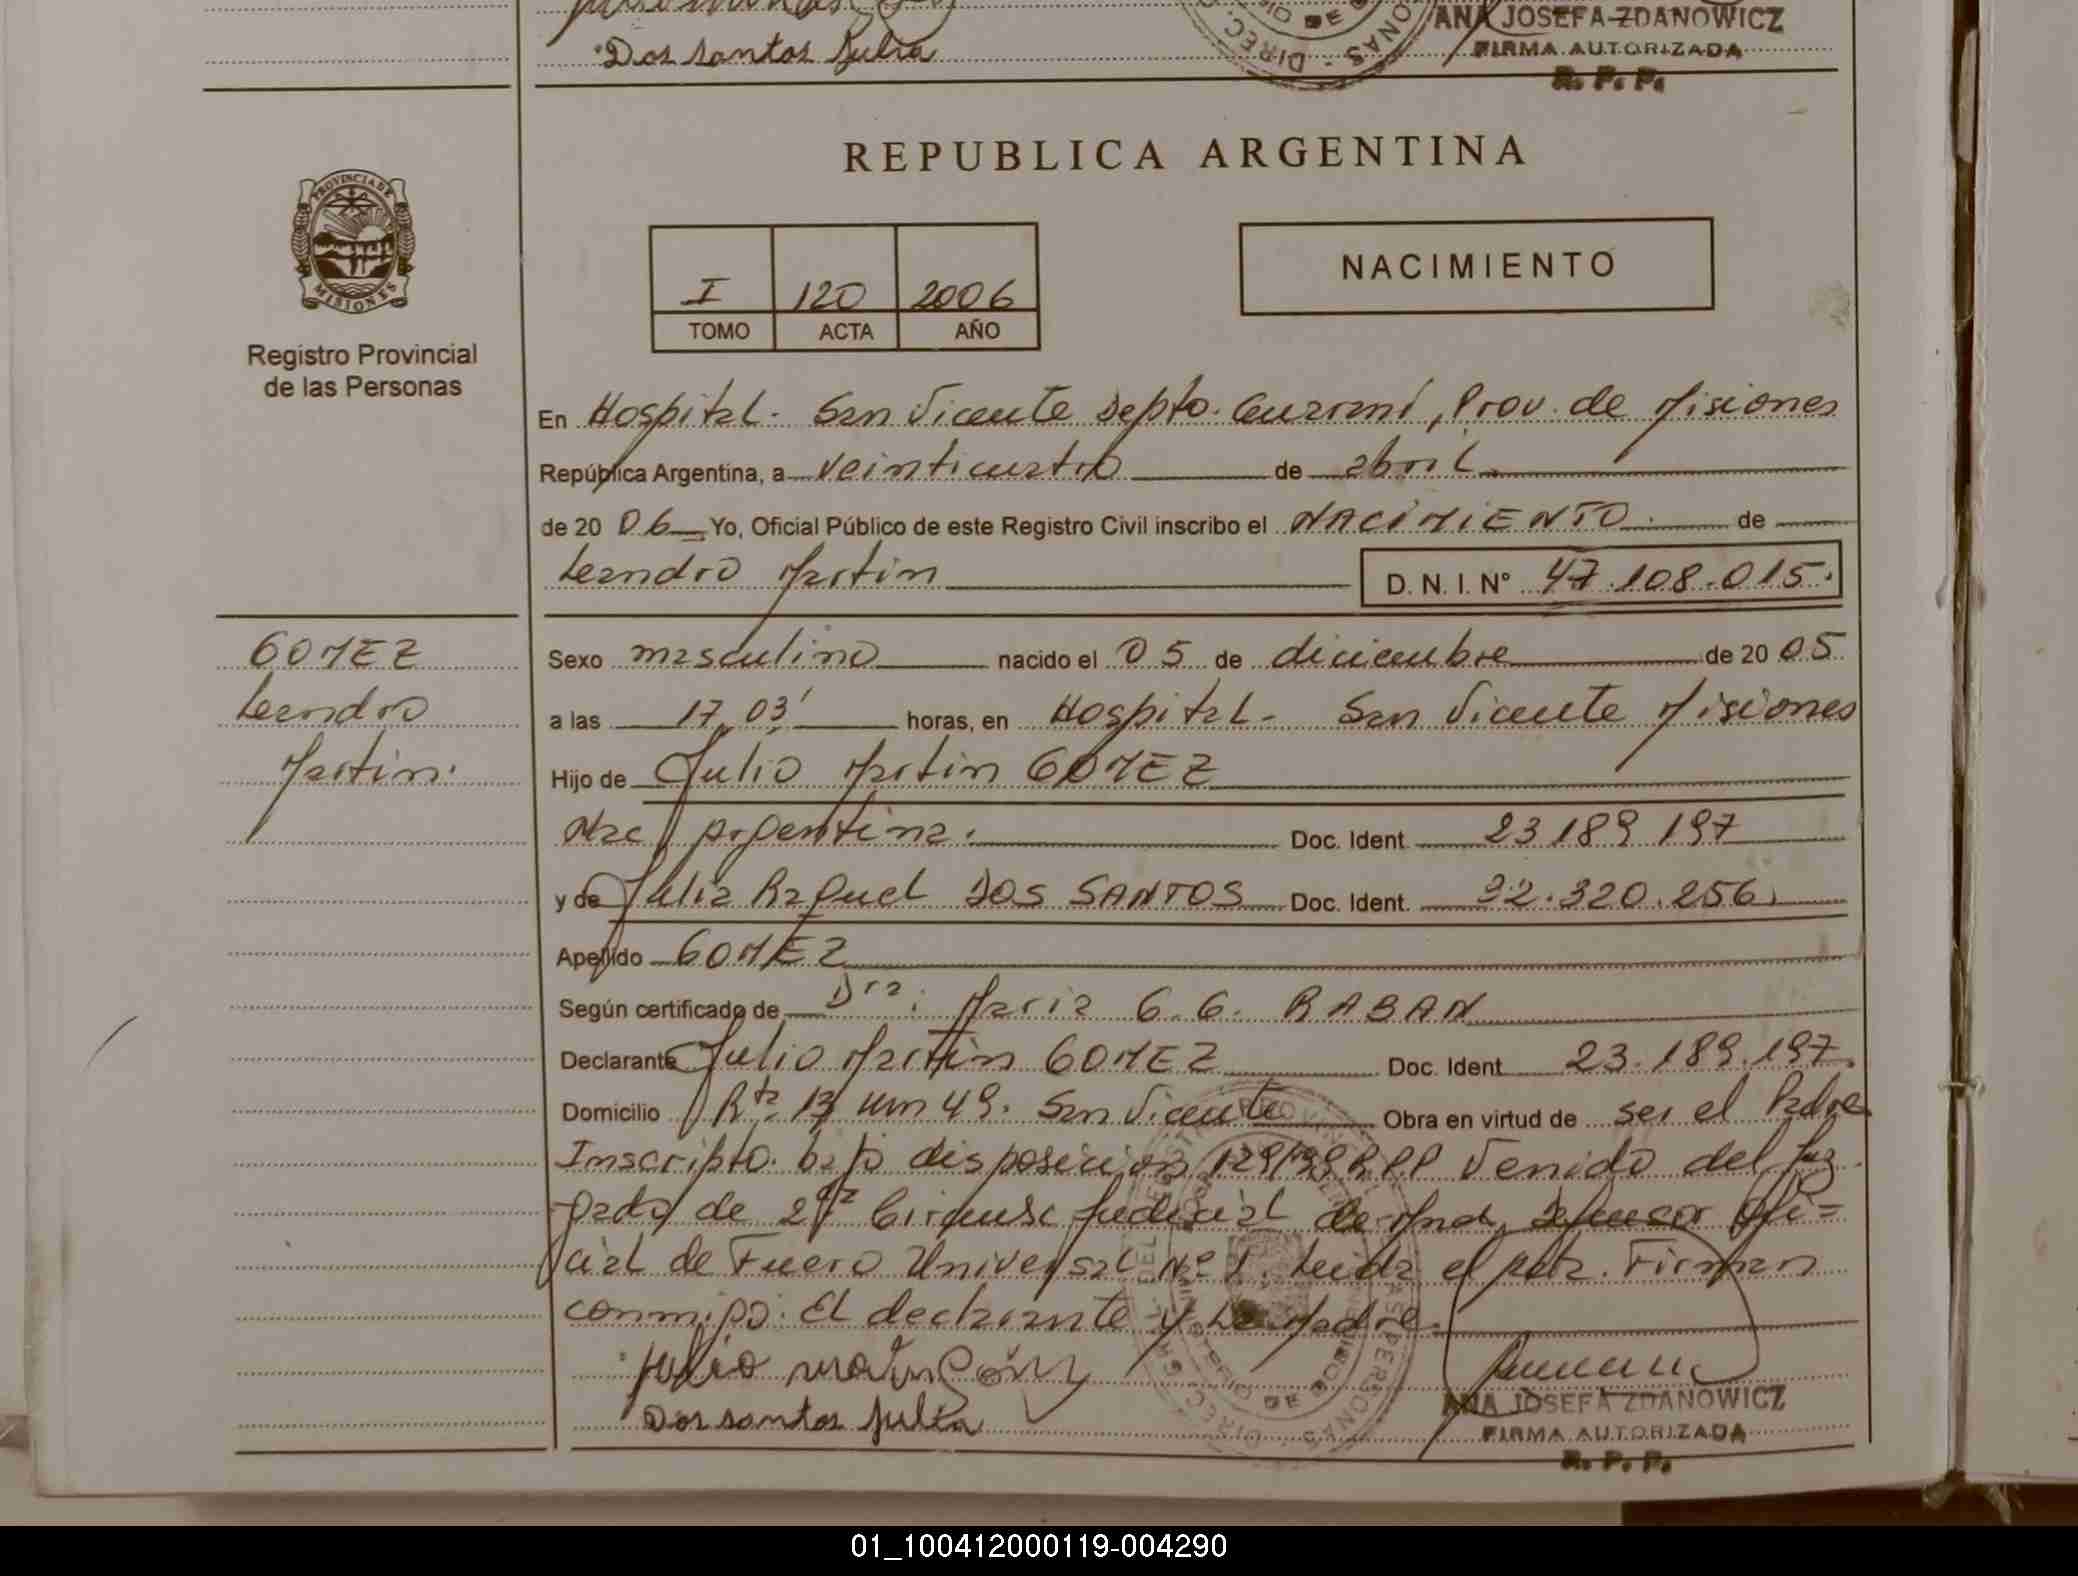 Dos santos Julia
ANA JOSEFA ZDANOWICZ
FIRMA AUTORIZADA
R. P. P.
REPUBLICA ARGENTINA
PROVINCIA DE
MISIONES
I 120 2006
TOMO ACTA AÑO
NACIMIENTO
Registro Provincial
de las Personas
En Hospital - San Vicente Depto. Guaraní, Prov. de Misiones
República Argentina, a veinticuatro de abril
de 20 06 Yo, Oficial Público de este Registro Civil inscribo el NACIMIENTO de
Leandro Martin D. N. I. N° 47.108.015.
GOMEZ
Leandro
Martin.
Sexo masculino nacido el 05 de diciembre de 20 05
a las 17,03' horas, en Hospital - San Vicente Misiones
Hijo de Julio Martin GOMEZ
Nac Argentina. Doc. Ident. 23.189.197
y de Julia Raquel DOS SANTOS Doc. Ident. 32.320.256
Apellido GOMEZ
Según certificado de Dra: Maria G. G. RABAN
Declarante Julio Martin GOMEZ Doc. Ident. 23.189.197.
Domicilio Rta 13 km 49. San Vicente Obra en virtud de ser el Padre
Inscripto bajo disposicion 129/99 R.P.P Venido del Juz
gado de 2da Circunsc Judicial de Mnes, Defensor Ofi=
cial de Fuero Universal N° 1. Leida el acta. Firman
conmigo: El declarante y La Madre.
Julio Martin Gomez
Dos santos Julia
ANA JOSEFA ZDANOWICZ
FIRMA AUTORIZADA
R. P. P.
01_100412000119-004290